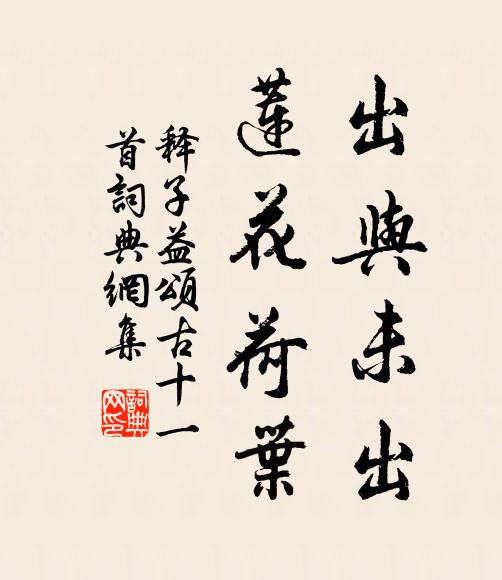 出與未出
蓮花荷葉
释子益頌古十一
首詞典網集
詞典网印